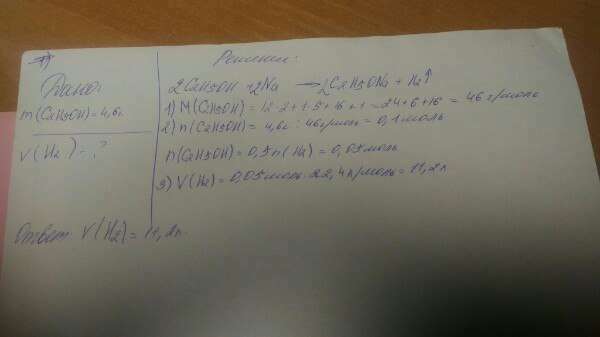 Решение:
Дано:
m(C2H5OH) = 4,6г
V(H2) = ?
2C2H5OH + 2Na → 2C2H5ONa + H2↑
1) M(C2H5OH) = 12·2+1·5+16+1 = 24+6+16 = 46 г/моль
2) n(C2H5OH) = 4,6г : 46г/моль = 0,1 моль
n(C2H5OH) = 0,5n(H2) = 0,05 моль
3) V(H2) = 0,05 моль · 22,4 л/моль = 11,2 л
Ответ: V(H2) = 11,2л.